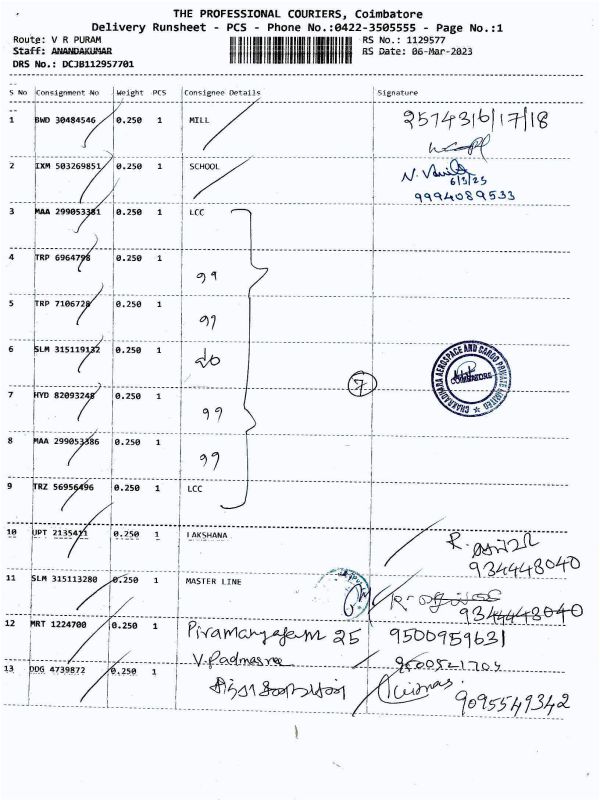 THE PROFESSIONAL COURIERS, Coimbatore
Delivery Runsheet - PCS - Phone No.:0422-3505555 - Page No.:1
Route: V R PURAM RS No.: 1129577
Staff: ANANDAKUMAR RS Date: 06-Mar-2023
DRS No.: DCJB112957701
S No Consignment No Weight PCS Consignee Details Signature
1 BWD 30484546 0.250 1 MILL 2574316/17/18
2 IXM 503269851 0.250 1 SCHOOL
6/3/23
9994089533
3 MAA 299053381 0.250 1 LCC
4 TRP 6964798 0.250 1
5 TRP 7106728 0.250 1
6 SLM 315119132 0.250 1
7 HYD 82093248 0.250 1 7
8 MAA 299053386 0.250 1
CHAKRADHARA AEROSPACE AND CARGO PRIVATE LIMITED
COIMBATORE
9 TRZ 56956496 0.250 1 LCC
10 UPT 2135411 0.250 1 LAKSHANA R.
934448040
11 SLM 315113280 0.250 1 MASTER LINE R.
934448040
12 MRT 1224700 0.250 1 Piramanyagam 25 9500959631
V. Padmasra
13 DDG 4739872 0.250 1 9095549342